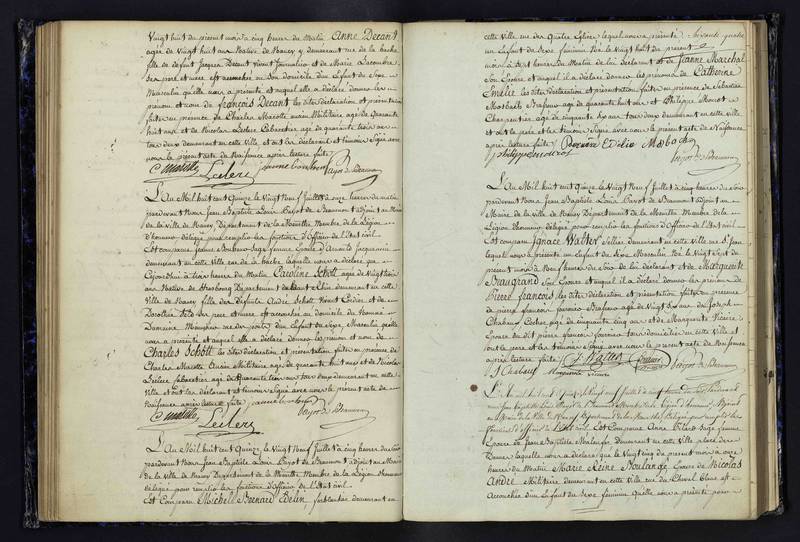 Vingt huit du présent mois à cinq heures du Matin Anne Decant
agée de Vingt huit ans Native de Nancy y demeurant rue de la hache
fille de defunt Jacques Decant vivant Journalier et de Marie Lacombe
Ses père et mere est accouchée en son domicile d'un Enfant du Sexe
Masculin qu'elle nous a présenté et auquel elle a déclaré donner les
prénom et nom de françois Decant les dites déclaration et présentation
faites en présence de Charles Macotte ancien Militaire agé de quarante
huit ans et de Nicolas Leclerc Cabaretier agé de quarante trois ans
tous deux demeurant en cette Ville, et ont les déclarant et témoins Signé avec
nous le présent acte de Naissance après lecture faite
Leclerc
L'An Mil huit cent Quinze le Vingt Neuf Juillet à onze heures du matin
pardevant Nous Jean Baptiste Louis Payot de Beaumont adjoint au Maire
de la Ville de Nancy Département de la Meurthe Membre de la Légion
d'honneur délégué pour remplir les fonctions d'Officier de l'Etat civil
Est comparue Sage femme Epouse d'
en cette Ville rue de la hache laquelle nous a déclaré que
Cejourd'hui à trois heures du Matin Caroline Schott agée de Vingt trois
ans Native de Strasbourg Département du haut Rhin demeurant en cette
Ville de Nancy fille des défunts André Schott Vivant Cordier et de
Dorothée Ses père et mere est accouchée au domicile du
Domaine d'un Enfant du Sexe Masculin qu'elle
nous a présenté et auquel elle a déclaré donner les prénom et nom de
Charles Schott les dites déclaration et présentation faites en présence de
Charles Macotte Ancien Militaire agé de quarante huit ans et de Nicolas
Leclerc Cabaretier agé de quarante trois ans tous deux demeurant en cette
Ville, et ont les déclarant et témoins Signé avec nous le présent acte de
Naissance après lecture faite
Leclerc
L'An Mil huit Cent Quinze le Vingt Neuf Juillet à cinq heures du Soir
pardevant Nous Jean Baptiste Louis Payot de Beaumont adjoint au Maire
de la Ville de Nancy Département de la Meurthe Membre de la Légion d'honneur
délégué pour remplir les fonctions d'Officier de l'Etat civil
Est Comparu Michel Bernard Edelin ferblantier demeurant en
cette Ville rue des Quatre Eglises lequel nous a présenté
un Enfant du Sexe féminin Né le Vingt huit du présent
mois à trois heures du Matin de lui déclarant et de Jeanne Marchal
Son Epouse et auquel il a déclaré donner les prénoms de Catherine
Emelie les dites déclaration et présentation faites en présence de Sébastien
Mosbach Brasseur agé de quarante huit ans et Philippe Mourot
Charpentier agé de cinquante Six ans tous deux demeurant en cette Ville
et ont le pere et les témoins Signé avec nous le présent acte de Naissance
après lecture faite
L'An Mil huit cent Quinze le Vingt Neuf Juillet à cinq heures du Soir
pardevant Nous Jean Baptiste Louis Payot de Beaumont adjoint au
Maire de la Ville de Nancy Département de la Meurthe Membre de la
Légion d'honneur délégué pour remplir les fonctions d'Officier de l'Etat Civil
Est comparu Ignace Walter Sellier demeurant en cette Ville rue St Jean
lequel nous a présenté un Enfant du Sexe Masculin Né le Vingt Sept du
présent mois à Neuf heures du Soir de lui déclarant et de Marguerite
Beaugrand Son Epouse et auquel il a déclaré donner les prénoms de
Pierre françois les dites déclaration et présentation faites en présence
de pierre françois Brasseur agé de Vingt Six ans de Joseph
Chaleux Cocher agé de cinquante cinq ans et de Marguerite
Epouse du dit pierre françois tous domiciliés en cette Ville et
ont le pere et les témoins Signé avec nous le présent acte de Naissance
après lecture faite I Walter
J Chaleux
L'An mil huit Cent Quinze le Vingt neuf Juillet à cinq heures du Soir pardevant
nous Jean Baptiste Louis Payot de Beaumont Membre de la Légion d'honneur, Adjoint
au Maire de la Ville de Nancy Département de la Meurthe Délégué pour remplir les
fonctions d'officier de l'Etat civil. Est Comparue Anne Sage femme
Epouse de Jean Baptiste demeurant en cette Ville place de
laquelle nous a déclaré que le Vingt cinq du présent mois à onze
heures du Matin Marie Reine Boulangé Epouse de Nicolas
André Militaire demeurant en cette Ville rue du Cheval blanc est
accouchée d'un Enfant du Sexe féminin Qu'elle nous a présenté pour